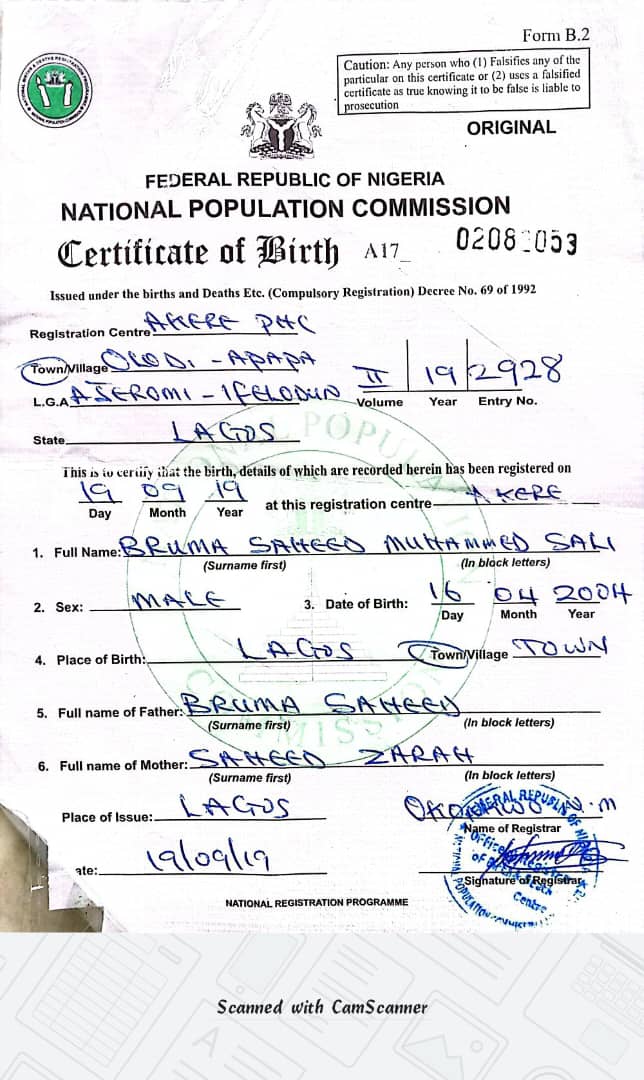 Form B.2
Caution: Any person who (1) Falsifies any of the
particular on this certificate or (2) uses a falsified
certificate as true knowing it to be false is liable to
prosecution
ORIGINAL
FEDERAL REPUBLIC OF NIGERIA
NATIONAL POPULATION COMMISSION
Certificate of Birth A17_ 0208 053
Issued under the births and Deaths Etc. (Compulsory Registration) Decree No. 69 of 1992
Registration Centre AKERE PHC
Town/Village OLODI - APAPA
II 19 2928
L.G.A AJEROMI - IFELODUN Volume Year Entry No.
State LAGOS
This is to certify that the birth, details of which are recorded herein has been registered on
19 09 19 at this registration centre AKERE
Day Month Year
1. Full Name: BRUMA SAHEED MUHAMMED SALI
(Surname first) (In block letters)
2. Sex: MALE 3. Date of Birth: 16 04 2004
Day Month Year
4. Place of Birth: LAGOS Town/Village TOWN
5. Full name of Father: BRUMA SAHEED
(Surname first) (In block letters)
6. Full name of Mother: SAHEED ZARAH
(Surname first) (In block letters)
Place of Issue: LAGOS N.M
Name of Registrar
ate: 19/09/19
Signature of Registrar
NATIONAL REGISTRATION PROGRAMME
Scanned with CamScanner